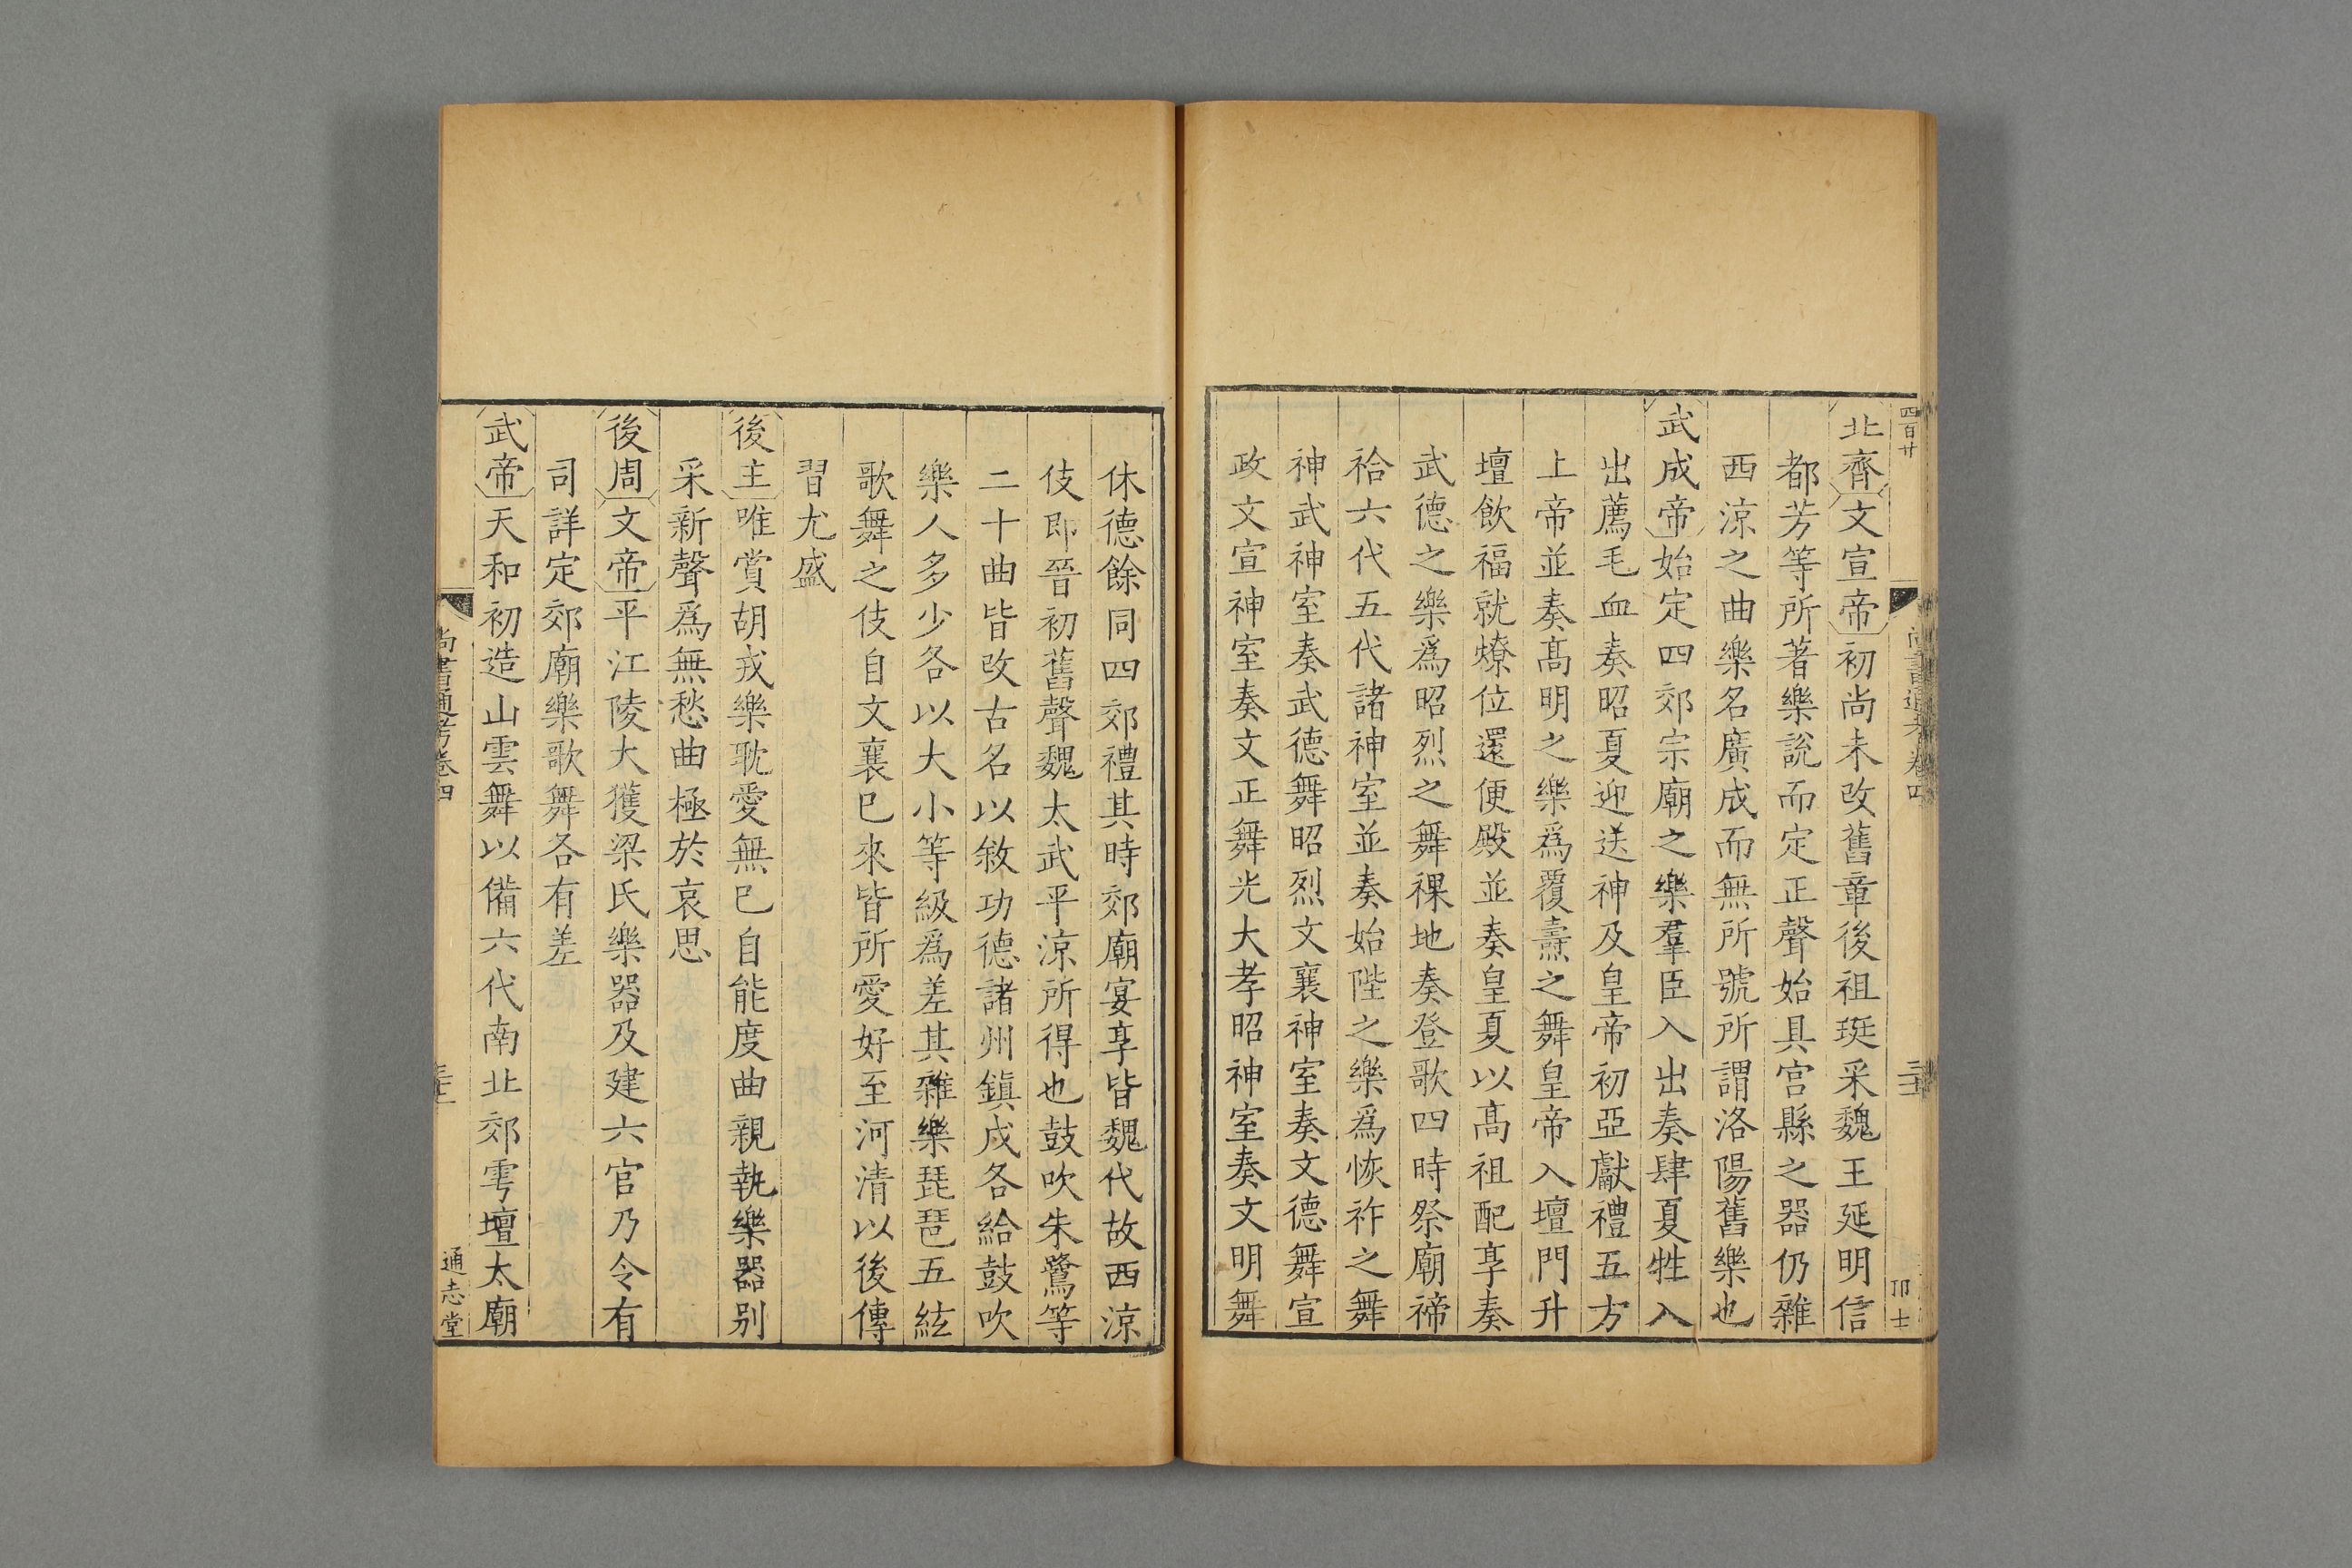 四百廿
尚書通考卷四
北齊文宣帝初尚未改舊章後祖珽采魏王延明信
都芳等所著樂說而定正聲始具宮縣之器仍雜
西涼之曲樂名廣成而無所號所謂洛陽舊樂也
武成帝始定四郊宗廟之樂羣臣入出奏肆夏牲入
出薦毛血奏昭夏迎送神及皇帝初亞獻禮五方
上帝並奏髙明之樂爲覆燾之舞皇帝入壇門升
壇飲福就燎位還便殿並奏皇夏以髙祖配享奏
武德之樂爲昭烈之舞祼地奏登歌四時祭廟禘
祫六代五代諸神室並奏始陛之樂爲恢祚之舞
神武神室奏武德舞昭烈文襄神室奏文德舞宣
政文宣神室奏文正舞光大孝昭神室奏文明舞
休德餘同四郊禮其時郊廟宴享皆魏代故西涼
伎即晉初舊聲魏太武平涼所得也鼓吹朱鷺等
二十曲皆改古名以敘功德諸州鎮戍各給鼓吹
樂人多少各以大小等級爲差其雜樂琵琶五絃
歌舞之伎自文襄已來皆所愛好至河清以後傳
習尤盛
後主唯賞胡戎樂耽愛無已自能度曲親執樂器别
采新聲爲無愁曲極於哀思
後周文帝平江陵大獲梁氏樂器及建六官乃令有
司詳定郊廟樂歌舞各有差
武帝天和初造山雲舞以備六代南北郊雩壇太廟
尚書通考卷四
通志堂